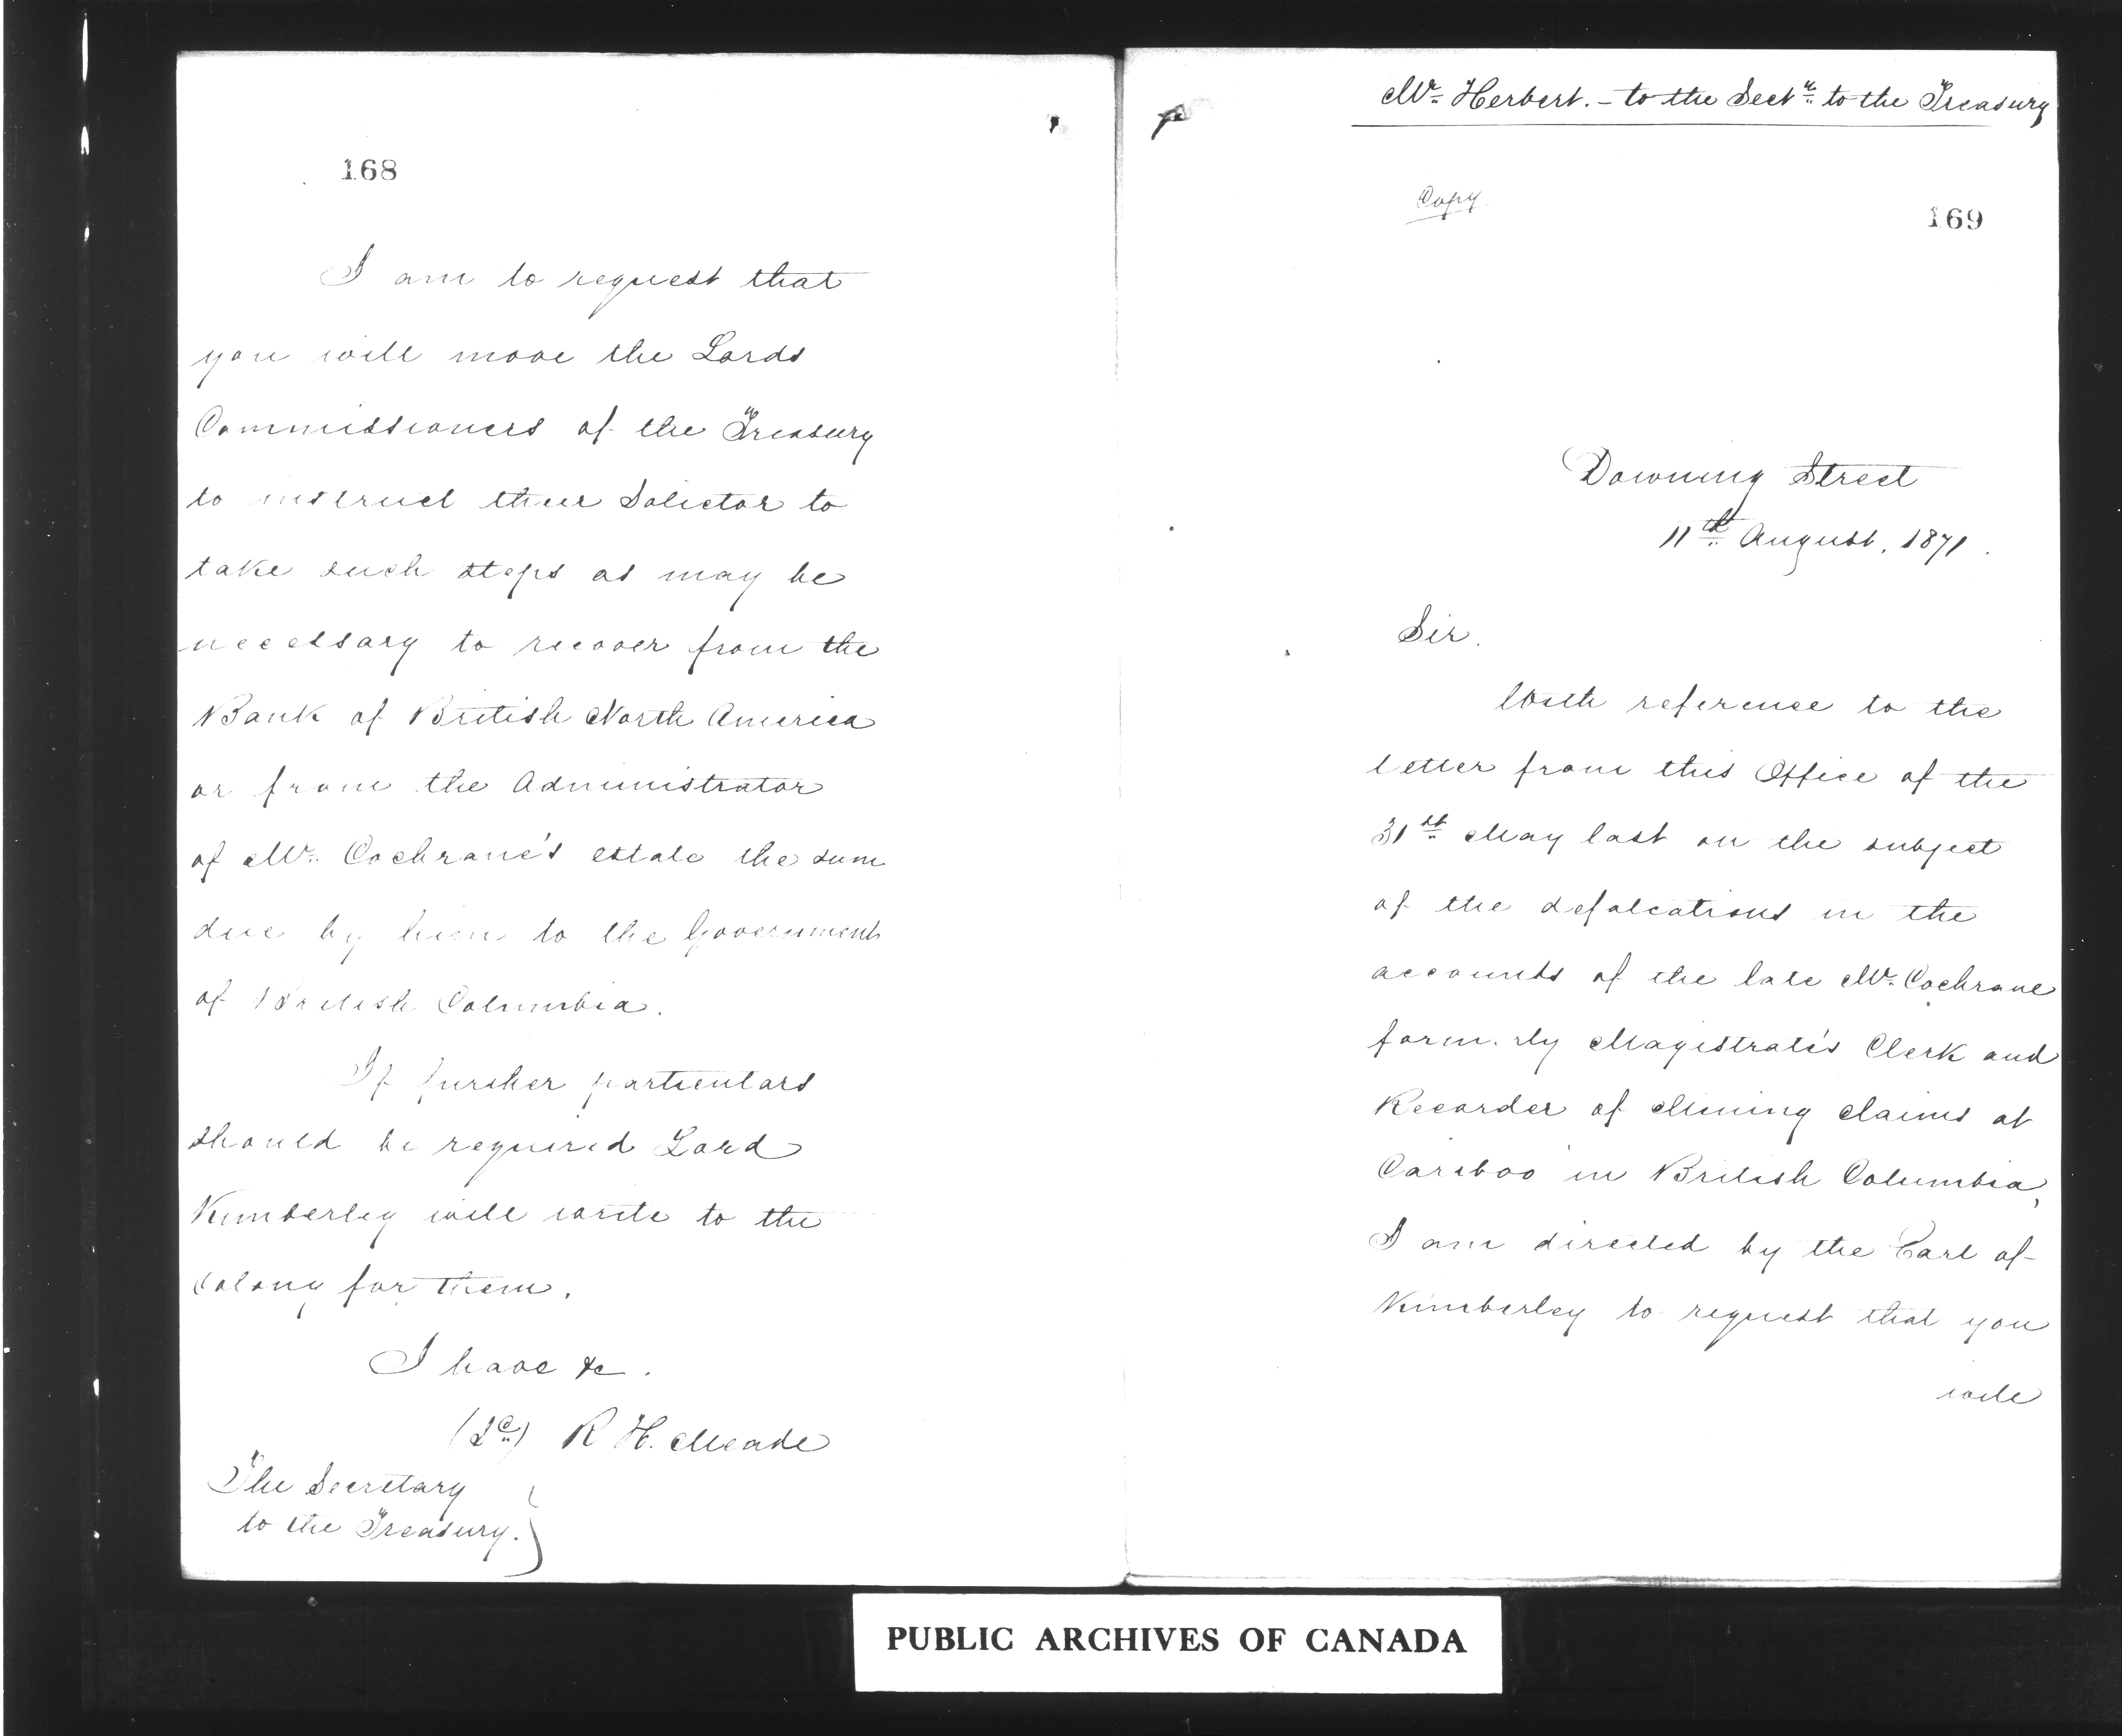 168
I am to request that
you will move the Lords
Commissioners of the Treasury
to instruct their Solictor to
take such steps as may be
necessary to recover from the
Bank of British North America
or from the Administrator
of Mr. Cochrane's estate the sum
due by him to the Government
of British Columbia.
If further particulars
should be required Lord
Kimberley will write to the
Colony for them.
I have &c.
(Sd) R H. Meade
The Secretary
to the Treasury.
Mr. Herbert. - to the Secty to the Treasury
Copy
169
Downing Street
11th August, 1871.
Sir.
With reference to the
letter from this Office of the
31st May last on the subject
of the defalcations in the
accounts of the late Mr. Cochrane
formerly Magistrate's Clerk and
Recorder of Mining Claims at
Cariboo in British Columbia,
I am directed by the Earl of
Kimberley to request that you
will
PUBLIC ARCHIVES OF CANADA